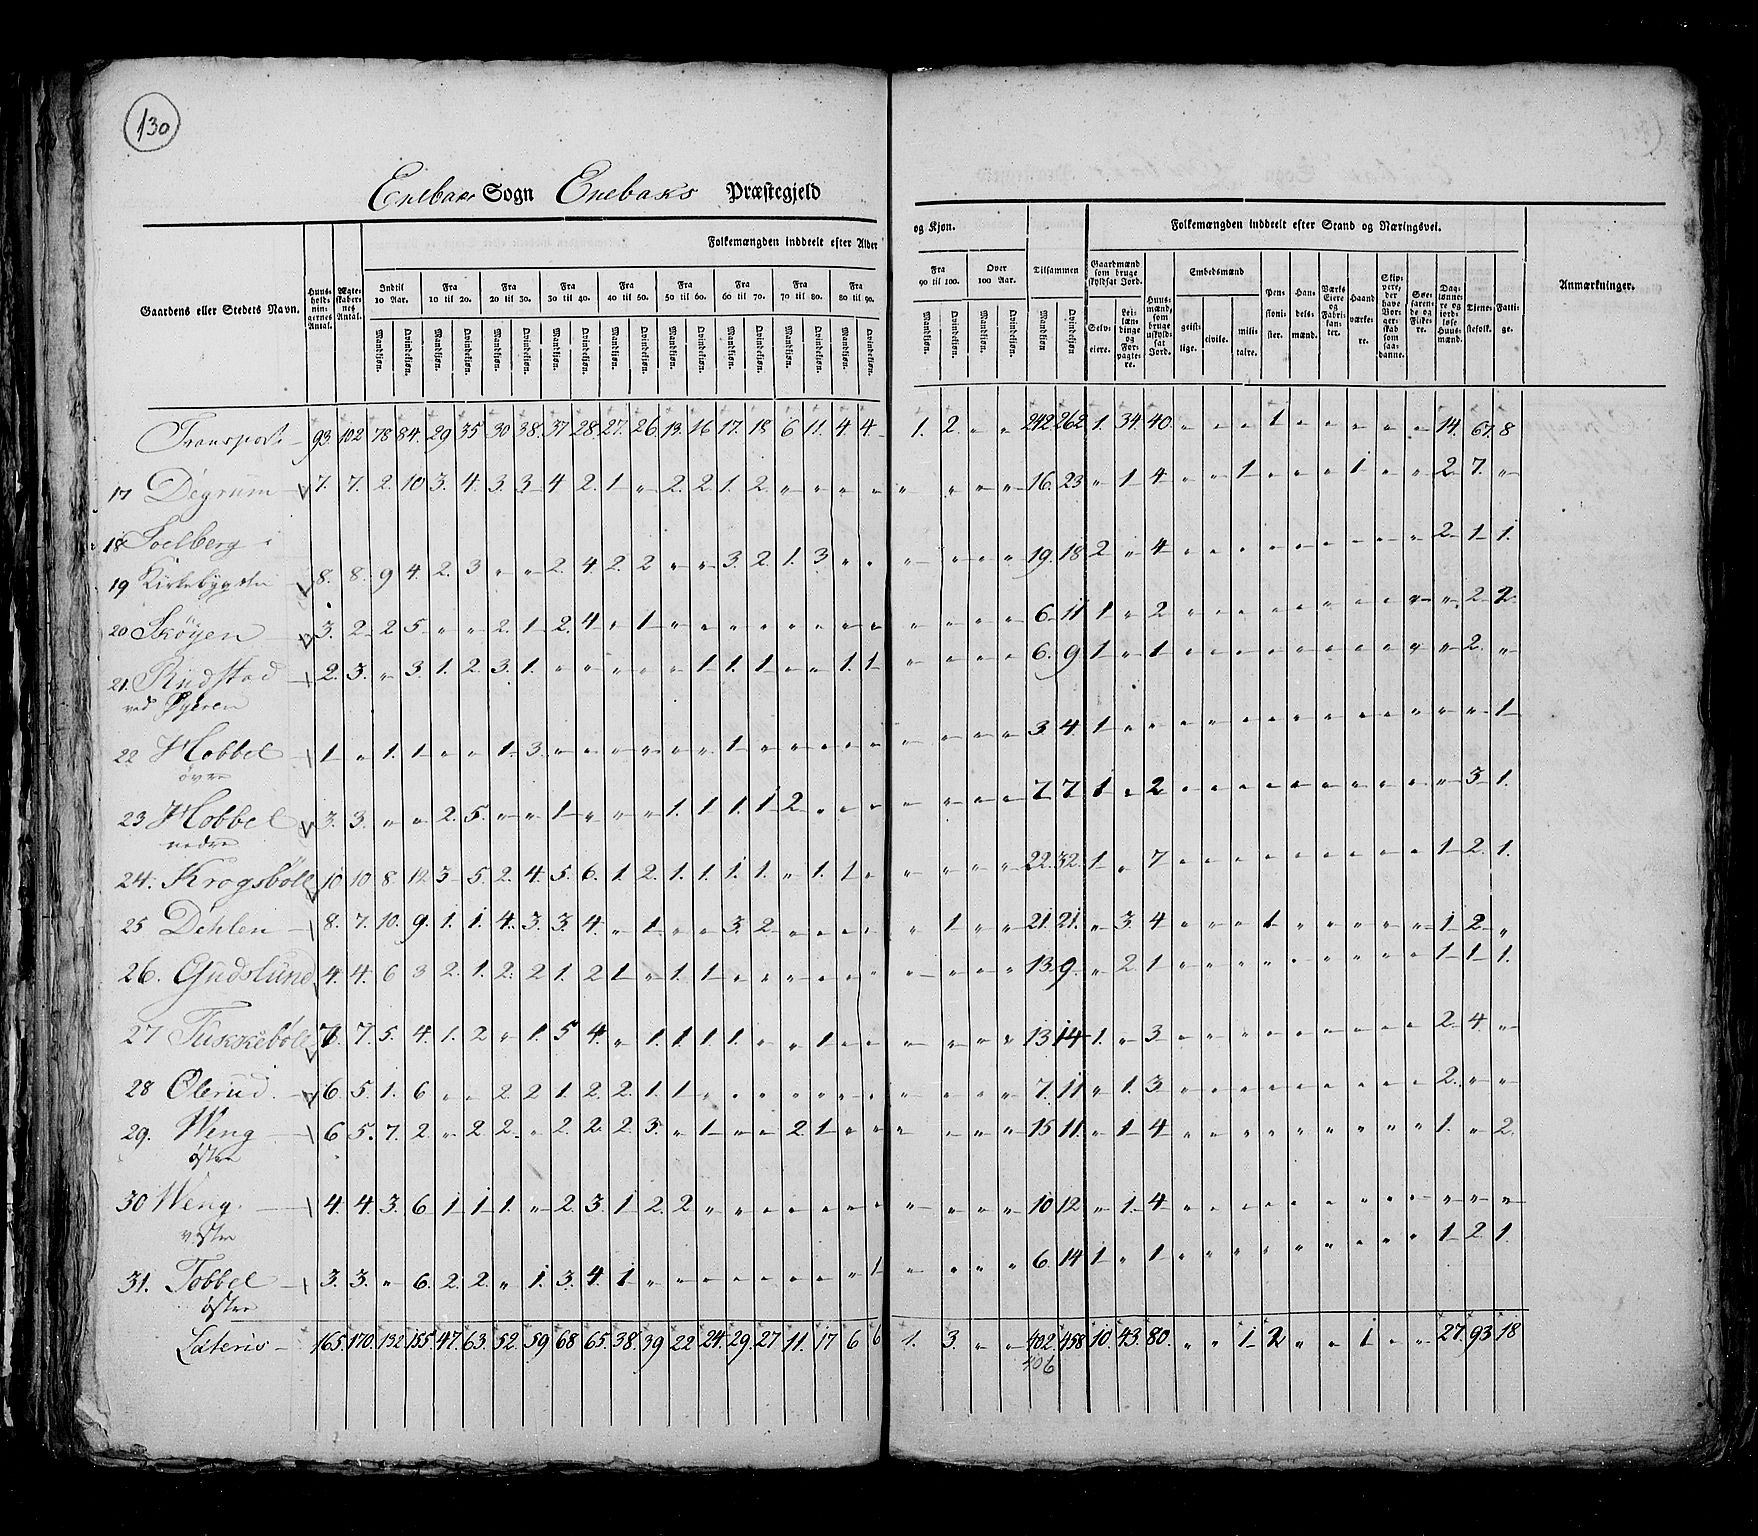 130
Enebak Sogn Enebaks Præstegjeld
Gaardens eller Stedets Navn. Huusholdningernes Antal. Ægteskabernes Antal. Folkemængden inddeelt efter Alder og Kjøn. Tilsammen Folkemængden inddeelt efter Stand og Næringsvei. Anmærkninger.
Indtil 10 Aar. Fra 10 til 20. Fra 20 til 30. Fra 30 til 40. Fra 40 til 50. Fra 50 til 60. Fra 60 til 70. Fra 70 til 80. Fra 80 til 90. Fra 90 til 100. Over 100 Aar.
Mandkjøn. Qvindekjøn. Mandkjøn. Qvindekjøn. Mandkjøn. Qvindekjøn. Mandkjøn. Qvindekjøn. Mandkjøn. Qvindekjøn. Mandkjøn. Qvindekjøn. Mandkjøn. Qvindekjøn. Mandkjøn. Qvindekjøn. Mandkjøn. Qvindekjøn. Mandkjøn. Qvindekjøn. Mandkjøn. Qvindekjøn. Mandkjøn Qvindekjøn
Gaardmænd som bruge skyldsat Jord. Selveiere. Leilændinge og Forpagtere. Huusmænd, som bruge uskyldsat Jord. Embedsmænd geistlige. civile. militaire. Pensionister. Handelsmænd. Værks Eiere og Fabrikanter. Haandværkere. Skippere, der have Borgerskab som saadanne. Søefarende og Fiskere. Daglønnere og jordløse Huusmænd. Tjenestefolk. Fattige.
Transport 93. 102 78 84. 29 35 30 38. 37 28. 27. 26. 13. 16 17. 18 6 11. 4. 4. 1. 2. „ „ 242 262 1. 34. 40. „ „ „ 1 „ „ „ „ „ 14. 67. 8
17 Degrum 7. 7. 2. 10 3. 4. 3. 3 4 2. 1 „ 2. 2. 1. 2. „ „ „ „ „ „ „ „ 16. 23 „ 1 4 „ „ 1 „ „ „ 1 „ „ 2 7. „
18 Soelberg i
19 Kirkebygden 8. 8. 9 4. 2. 3 „ „ 2. 4. 2. 2 „ „ 3. 2. 1. 3 „ „ „ „ „ „ 19. 18 2 „ 4 „ „ „ „ „ „ „ „ „ 2. 1 1.
20 Skøyen 3. 2. 2 5. „ „ 2. 1 2. 4 „ 1 „ „ „ „ „ „ „ „ „ „ „ „ 6. 11 1 „ 2 „ „ „ „ „ „ „ „ „ „ 2 2.
21. Rudstad 2. 3. „ 3. 1. 2. 3. 1. „ „ „ „ „ 1. 1. 1 „ „ 1. 1 „ „ „ „ 6. 9 1 „ 1 „ „ „ „ „ „ „ „ „ „ 2. „
ved Øyeren
22 Hobbel 1 „ 1. 1 „ „ 1. 3. „ „ „ „ „ „ 1 „ „ „ „ „ „ „ „ „ 3. 4 1 „ „ „ „ „ „ „ „ „ „ „ „ „ 1
øvre
23 Hobbel 3. 3. „ „ 2. 5. „ „ 1 „ „ „ 1. 1. 1. 1 2 „ „ „ „ „ „ „ 7 7 1 „ 2 „ „ „ „ „ „ „ „ „ „ 3 1.
nedre
24. Krogsbøll 10 10 8. 12 3 5. 2. 4. 5. 6. 1. 2. 1. 1. 1. 1. „ 1. 1 „ „ „ „ „ 22. 32. 1 „ 7 „ „ „ „ „ „ „ „ „ 1 2. 1.
25 Dehlen 8. 7. 10. 9. 1. 1. 4. 3. 3. 4. „ 1. „ „ 3. 2. „ „ „ „ „ 1 „ „ 21. 21. „ 3. 4 „ „ „ 1 „ „ „ „ „ 1 2. „
26. Gudslund 4. 4. 6 3 2. 1. 2. 2 1. 2 1 „ 1. 1 „ „ „ „ „ „ „ „ „ „ 13. 9 „ 2. 1 „ „ „ „ „ „ „ „ „ 1 1 1.
27 Tukkebøll 7. 7. 5. 4. 1. 2 „ 1. 5 4. „ 1. 1. 1. 1. „ „ 1 „ „ „ „ „ „ 13 14 1. „ 3 „ „ „ „ „ „ „ „ „ 2. 4 „
28 Olerud 6. 5. 1. 6 „ „ 2. 2 1. 2. 2. 1. 1 „ „ „ „ „ „ „ „ „ „ „ 7. 11 „ 1. 3 „ „ „ „ „ „ „ „ „ 2. „ „
29. Weng 6 5. 7. 2 „ 2. 2. „ 2. 2 2. 3. „ 1 „ „ 2 1. „ „ „ „ „ „ 15 11. „ 1 4 „ „ „ „ „ „ „ „ „ 1. „ 2.
østre
30 Weng 4. 4. 3. 6 1 1 1. „ 2. 3. 1 2. 2 „ „ „ „ „ „ „ „ „ „ „ 10 12 „ 1. 4 „ „ „ „ „ „ „ „ „ „ „ „
vestre
31. Tobbel 3. 3. „ 6. 2. 2. „ 1. 3. 4. 1 „ „ „ „ „ „ „ „ 1 „ „ „ „ 6. 14 1 „ 1 „ „ „ „ „ „ „ „ „ 1 2 1.
østre
Lateris 165. 170. 132 155 47. 63. 52. 59 68 65. 38. 39 22 24. 29. 27 11. 17 6 6 1. 3. „ „ 402. 458 10. 43. 80. „ „ 1 2 „ „ 1 „ „ 27. 93 18
406